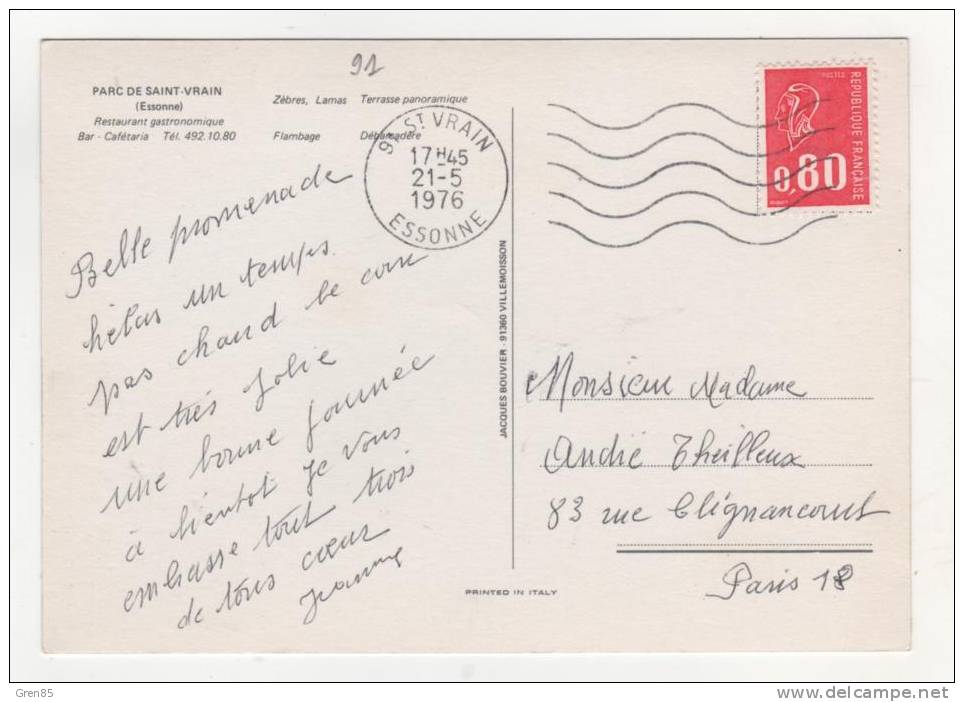 91
PARC DE SAINT-VRAIN
(Essonne)
Restaurant gastronomique
Bar - Cafétaria Tél. 492.10.80
Zèbres, Lamas Terrasse panoramique
Flambage Débarcadère
91 ST VRAIN
17H45
21-5
1976
ESSONNE
POSTES
REPUBLIQUE FRANÇAISE
0,80
Belle promenade
hélas un temps
pas chaud le
est très jolie
une bonne journée
à bientot je vous
embrasse tout trois
de tous cœur
Jeanne
JACQUES BOUVIER - 91360 VILLEMOISSON
Monsieur Madame
André Theilleux
83 rue Clignancourt
Paris 18
PRINTED IN ITALY
Gren85
www.delcampe.net